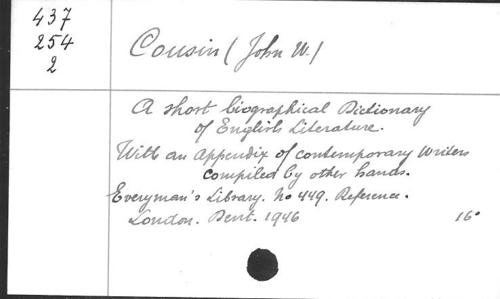 437
254
2
Cousin (John W.)
A short biographical Dictionary
of English Literature.
With an Appendix of contemporary writers
compiled by other hands.
Everyman's Library. No 449. Reference.
London. Dent. 1946 16°